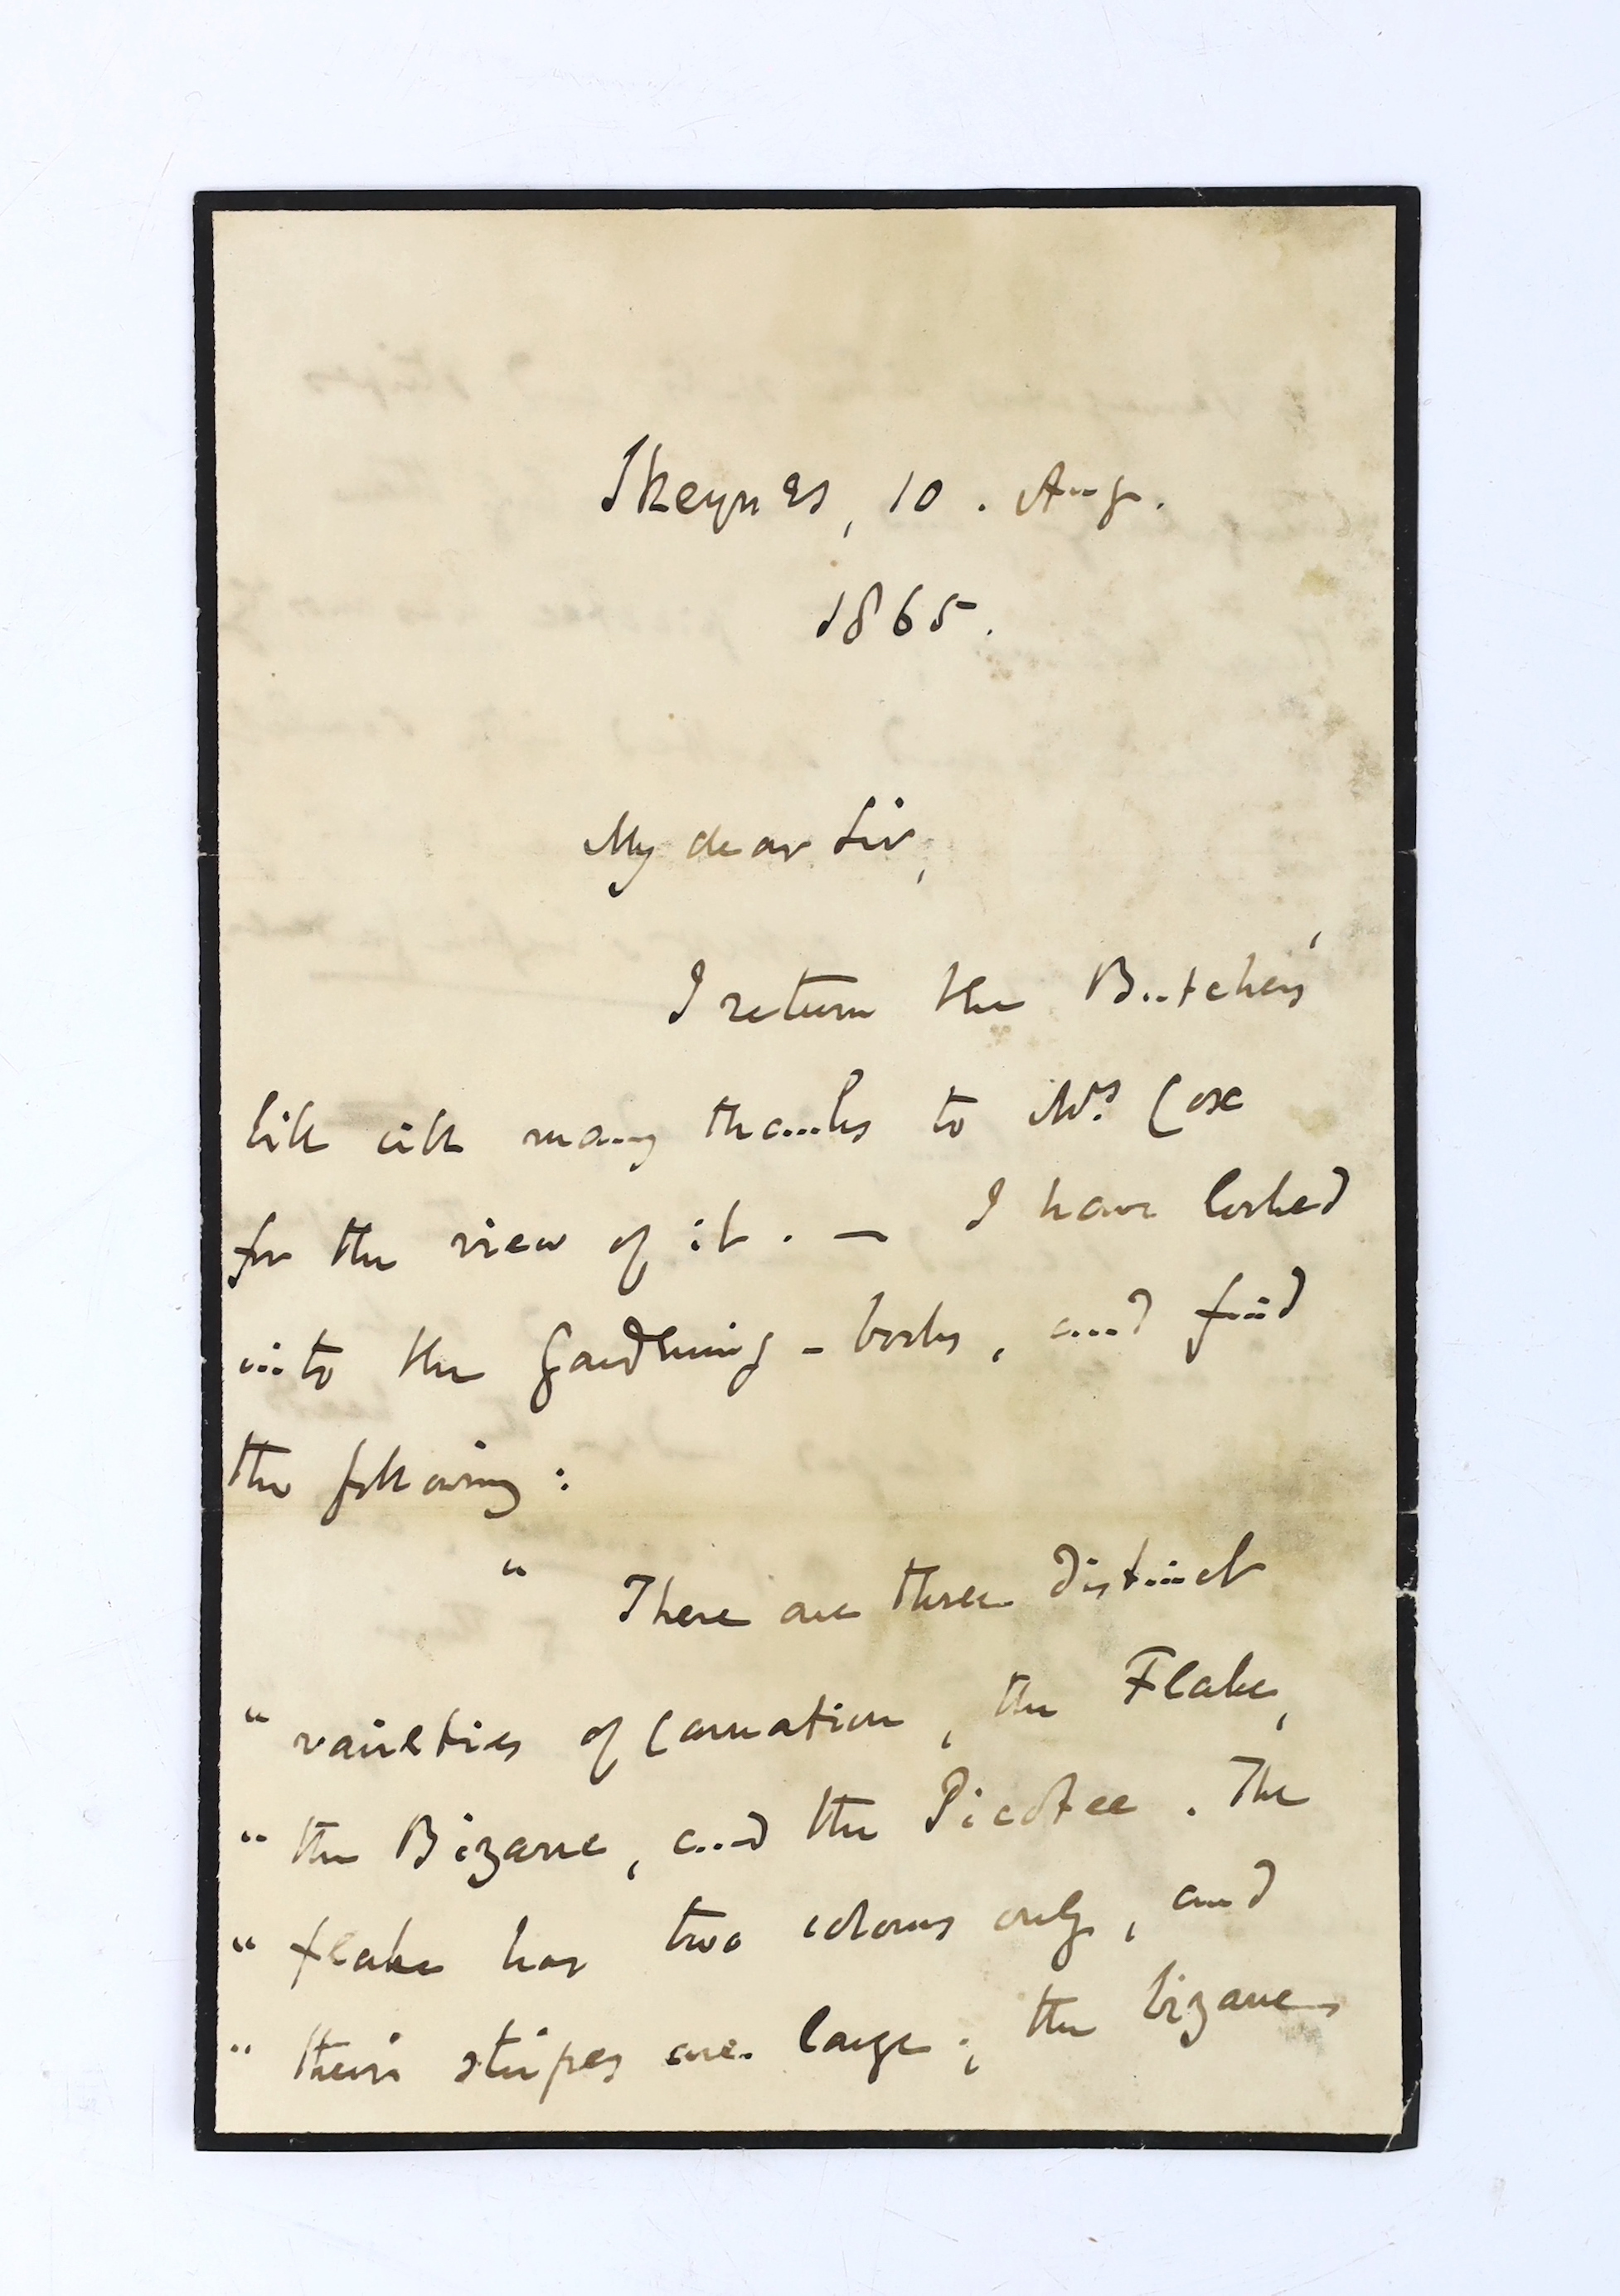 Skeynes, 10. Aug.
1865.
My dear Sir,
I return the Butchers'
bill with many thanks to Mrs Cox
for the view of it. — I have looked
into the Gardening-books, and find
the following:
" There are three distinct
" varieties of Carnation, the Flake,
" the Bizarre, and the Picotee. The
" flake has two colours only, and
" their stripes are large; the bizarre